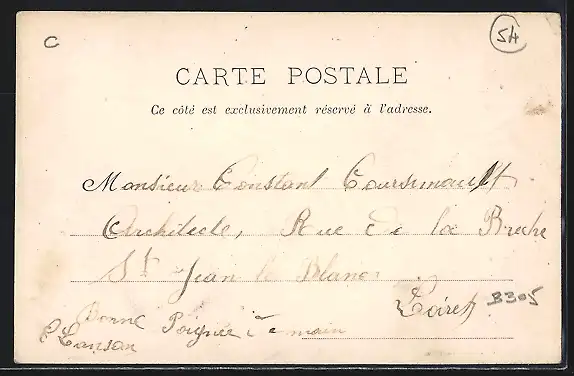 C
54
CARTE POSTALE
Ce côté est exclusivement réservé à l'adresse.
Monsieur Constant Coursimault
Architecte, Rue de la Breche
St Jean le Blanc
Loiret
B305
Bonne Poignée de main